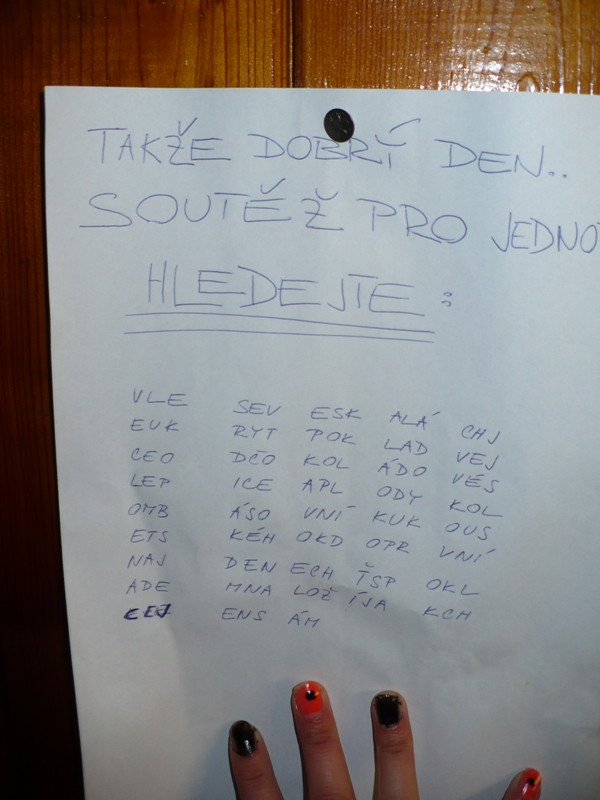 TAKŽE DOBRÝ DEN..
SOUTĚŽ PRO JEDNOT
HLEDEJTE:
VLE SEV ESK ALÁ CHJ
EUK RYT POK LAD VEJ
CEO DČO KOL ÁDO VÉS
LEP ICE APL ODY KOL
OMB ÁSO VNÍ KUK OUS
ETS KÉH OKD OPR VNÍ
NAJ DEN ECH ŤSP OKL
ADE MNA LOŽ ÍJA KCH
CEJ ENS ÁM